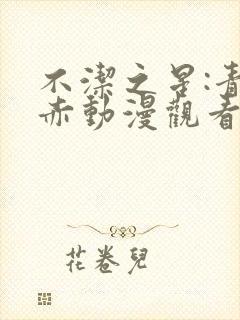 不潔之星:青
赤動漫觀看
花卷兒